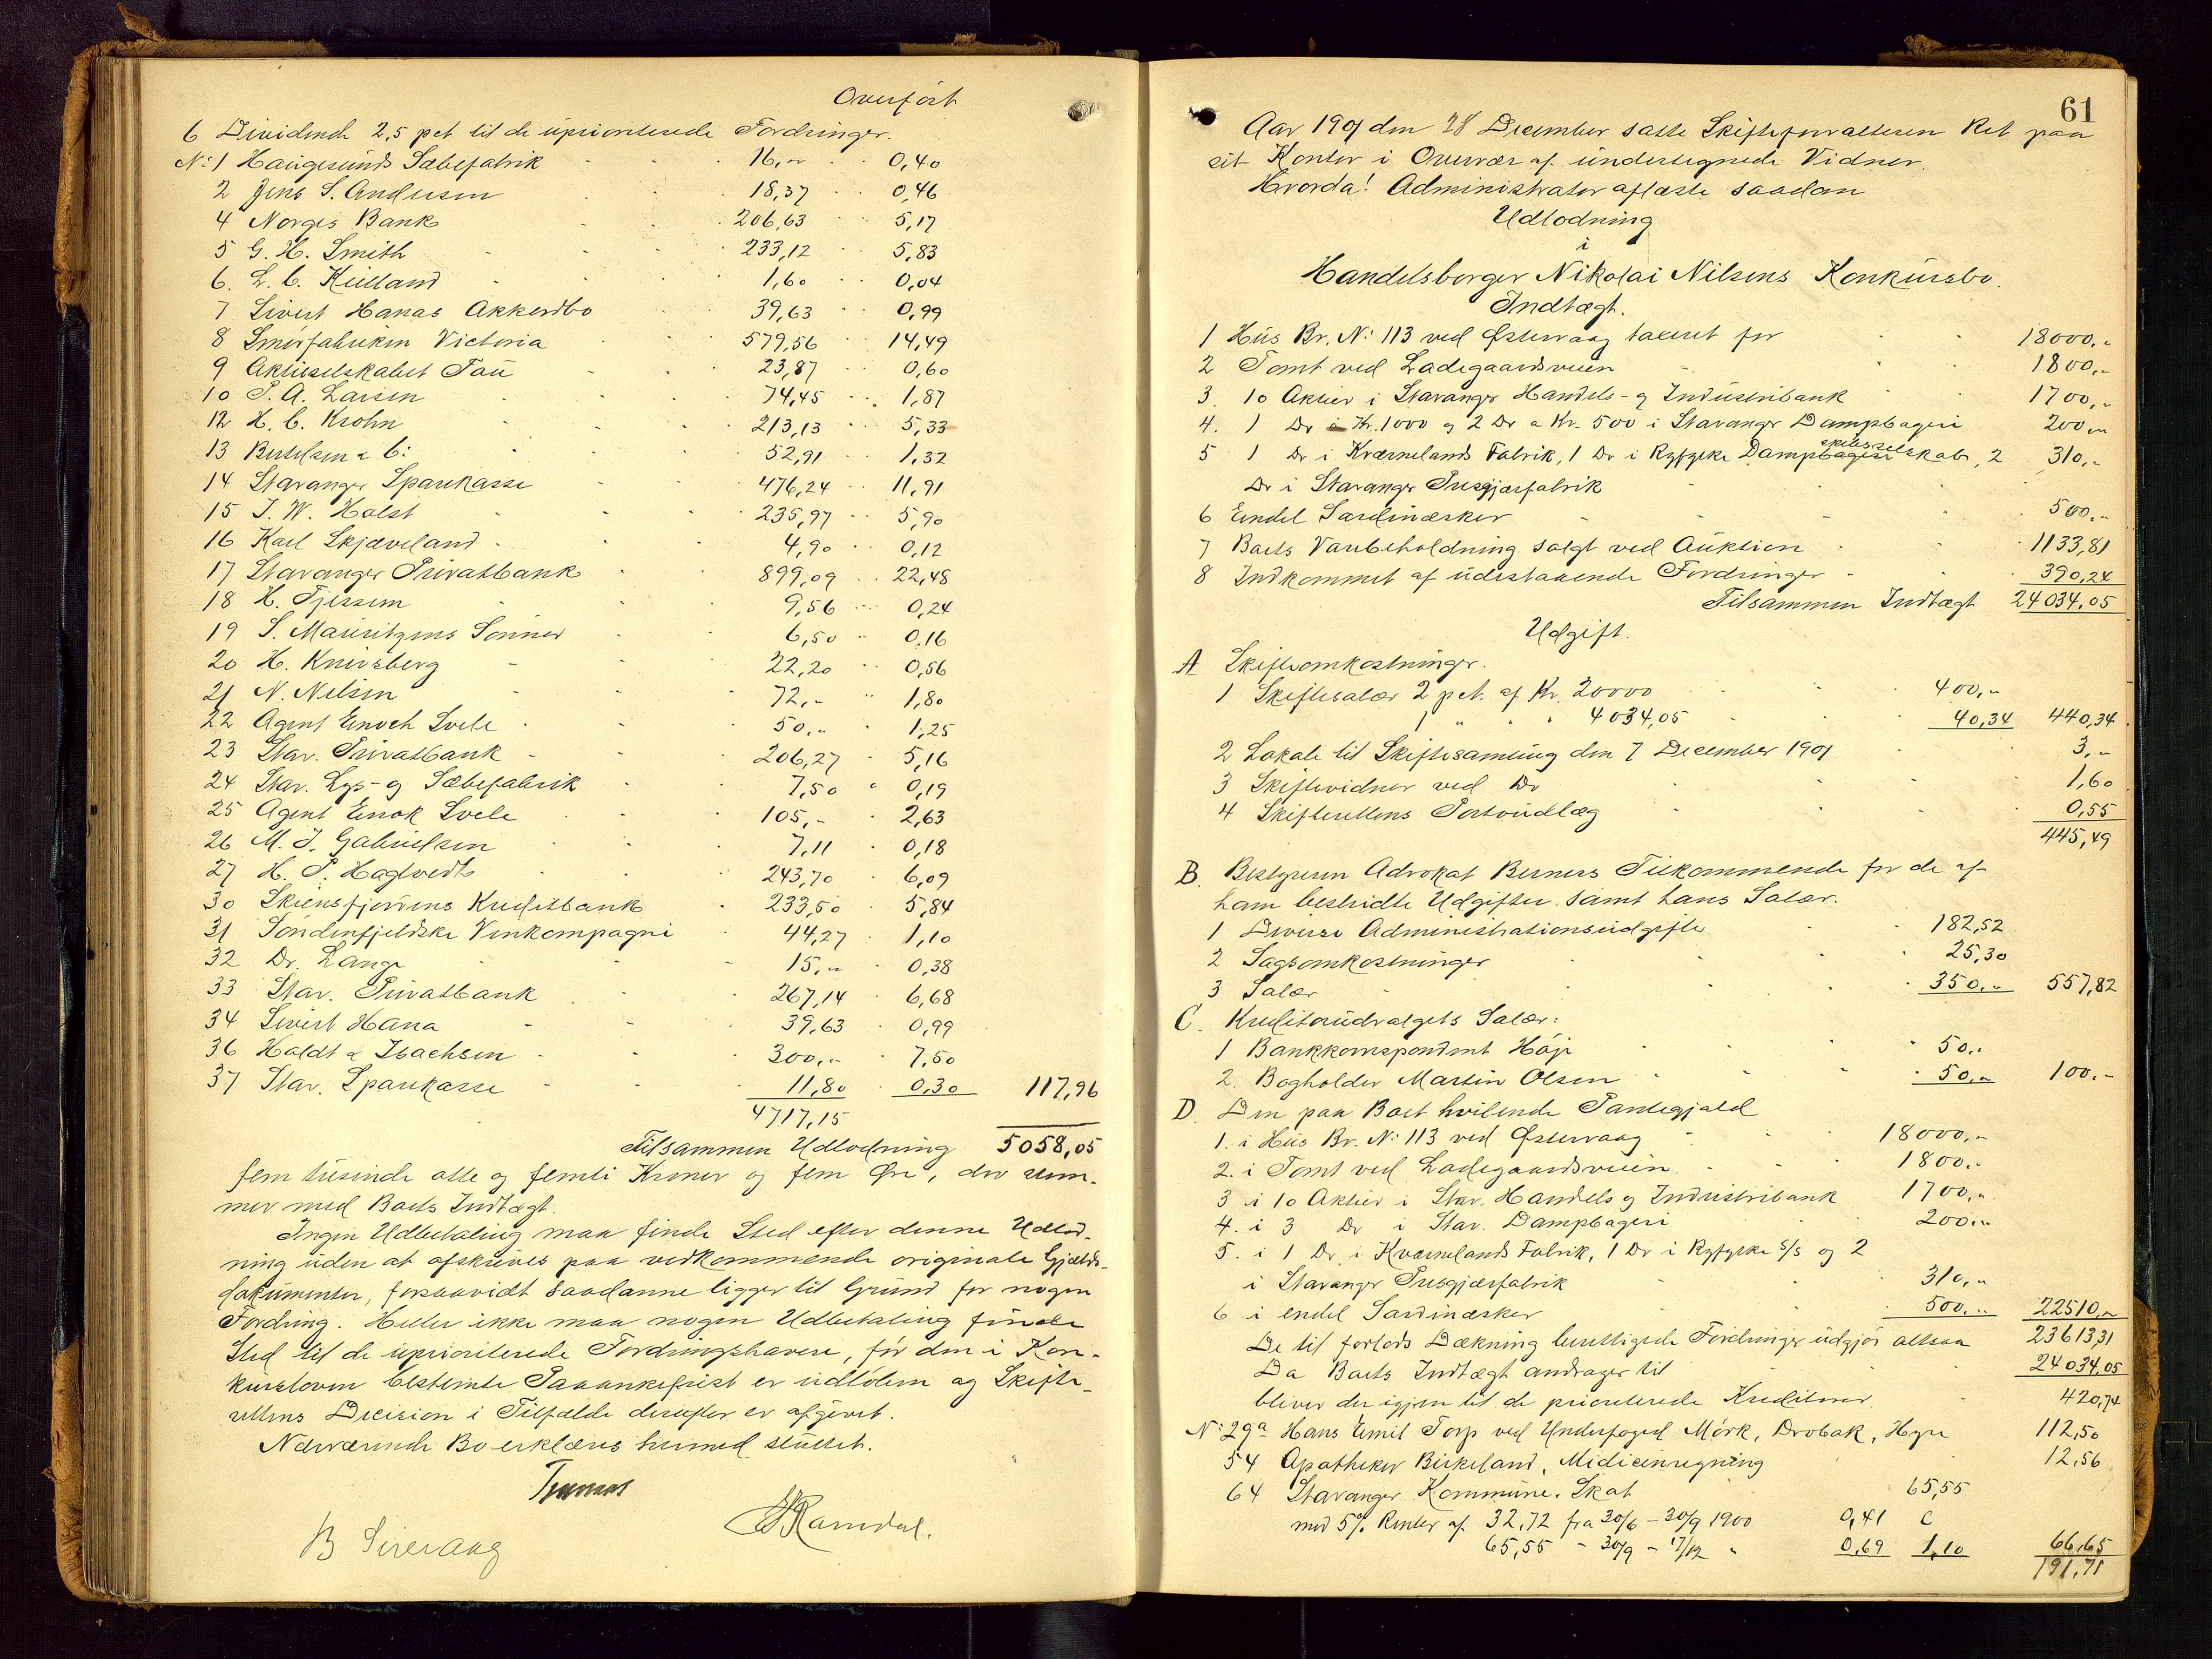 Overført
6 Dividende 2,5 pct til de uprioriterede Fordringer.
No: 1 Haugesunds Sæbefabrik 16,- 0,40
2 Jens S. Andersen 18,37 0,46
4 Norges Bank 206,63 5,17
5 G. H. Smith 233,12 5,83
6. L. C. Kielland 1,60 0,04
7 Sivert Hanas Akkordbo 39,63 0,99
8 Smørfabriken Victoria 579,56 14,49
9 Aktieselskabet Tau 23,87 0,60
10 P. A. Larsen 74,45 1,87
12 H. C. Krohn 213,13 5,33
13 Bertelsen & C: 52,91 1,32
14 Stavanger Sparekasse 476,24 11,91
15 J. W. Holst 235,97 5,90
16 Karl Skjæveland 4,90 0,12
17 Stavanger Privatbank 899,09 22,48
18 H. Tjessem 9,56 0,24
19 S. Mauritzens Sønner 6,50 0,16
20 H. Knivsberg 22,20 0,56
21 N. Nilsen 72,- 1,80
22 Agent Enoch Svele 50,- 1,25
23 Stav. Privatbank 206,27 5,16
24 Stav. Lys- og Sæbefabrik 7,50 0,19
25 Agent Enok Svele 105,- 2,63
26 M. J. Gabrielsen 7,11 0,18
27 H. P. Hagtvedt 243,70 6,09
30 Skiensfjorens Kreditbank 233,50 5,84
31 Søndenfjeldske Vinkompagni 44,27 1,10
32 Dr. Lange 15,- 0,38
33 Stav. Privatbank 267,14 6,68
34 Sivert Hana 39,63 0,99
36 Holdt & Isachsen 300,- 7,50
37 Stav. Sparekasse 11,80 0,30 117,96
4717,15
Tilsammen Udlodning 5058,05
fem tusinde otte og femti Kroner og fem Øre, der stem-
mer med Boets Indtægt.
Ingen Udbetaling maa finde Sted efter denne Udlod-
ning uden at afskrives paa vedkommende originale Gjælds-
dokumenter, forsaavidt saadanne ligger til Grund for nogen
Fordring. Heller ikke maa nogen Udbetaling finde
Sted til de uprioriterede Fordringshavere, før den i Kon-
kursloven bestemte Paaankefrist er udløben og Skifte-
rettens Decision i Tilfælde derefter er afgivet.
Nærværende Bo erklæres hermed sluttet.
B Sirevaag
61
Aar 1901 den 28 December satte Skifteforvalteren Ret paa
sit Kontor i Overvær af undertegnede Vidner.
Hvorda! Administrator aflæste saadan
Udlodning
i
Handelsborger Nikolai Nilsens Konkursbo.
Indtægt.
1 Hus Br. No: 113 ved Østervaag taxeret for 18000,-
2 Tomt ved Ladegaardsveien 1800,-
3. 10 Aktier i Stavanger Handels- og Industribank 1700,-
4. 1 Do à Kr. 1000 og 2 Do a Kr. 500 i Stavanger Dampbageri 200,-
5 1 Do i Kværnelands Fabrik, 1 Do i Ryfylke Dampskibsselskab, 2 310,-
Do i Stavanger Presgjærfabrik
6 Endel Sardinæsker 500,-
7 Boets Varebeholdning solgt ved Auktion 1133,81
8 Indkommet af udestaaende Fordringer 390,24
Tilsammen Indtægt 24034,05
Udgift.
A Skifteomkostninger.
1 Skiftesalær 2 pct. af Kr. 20000 400,-
1 " " " 4034,05 40,34 440,34
2 Lokale til Skiftesamling den 7 December 1901 3,-
3 Skiftevidner ved Do 1,60
4 Skifterettens Portoudlæg 0,55
445,49
B. Bestyreren Advokat Berners Tilkommende for de af
ham bestridte Udgifter samt hans Salær.
1 Diverse Administrationsudgifter 182,52
2 Sagsomkostninger 25,30
3 Salær 350,- 557,82
C. Kreditorudvalgets Salær:
1 Bankkorrespondent Høje 50,-
2. Bogholder Martin Olsen 50,- 100,-
D. Den paa Boet hvilende Pantegjæld
1. i Hus Br. No: 113 ved Østervaag 18000,-
2. i Tomt ved Ladegaardsveien 1800,-
3 i 10 Aktier i Stav. Handels og Industribank 1700,-
4. i 3 Do i Stav. Dampbageri 200,-
5. i 1 Do i Kværnelands Fabrik, 1 Do i Ryfylke S/S og 2
i Stavanger Presgjærfabrik 310,-
6 i endel Sardinæsker 500,- 22510,-
De til forlods Dækning berettigede Fordringer udgjør altsaa 23613,31
Da Boets Indtægt andrager til 24034,05
bliver der igjen til de prioriterede Kreditorer 420,74
No: 29a Hans Emil Torp ved Underfoged Mørk, Drobak, Hyre 112,50
54 Apotheker Birkeland, Medicinregning 12,56
64 Stavanger Kommune. Skat 65,55
med 5% Renter af 32,72 fra 30/6 - 30/9 1900 0,41
65,55 - 30/9 - 17/12 " 0,69 1,10 66,65
191,71